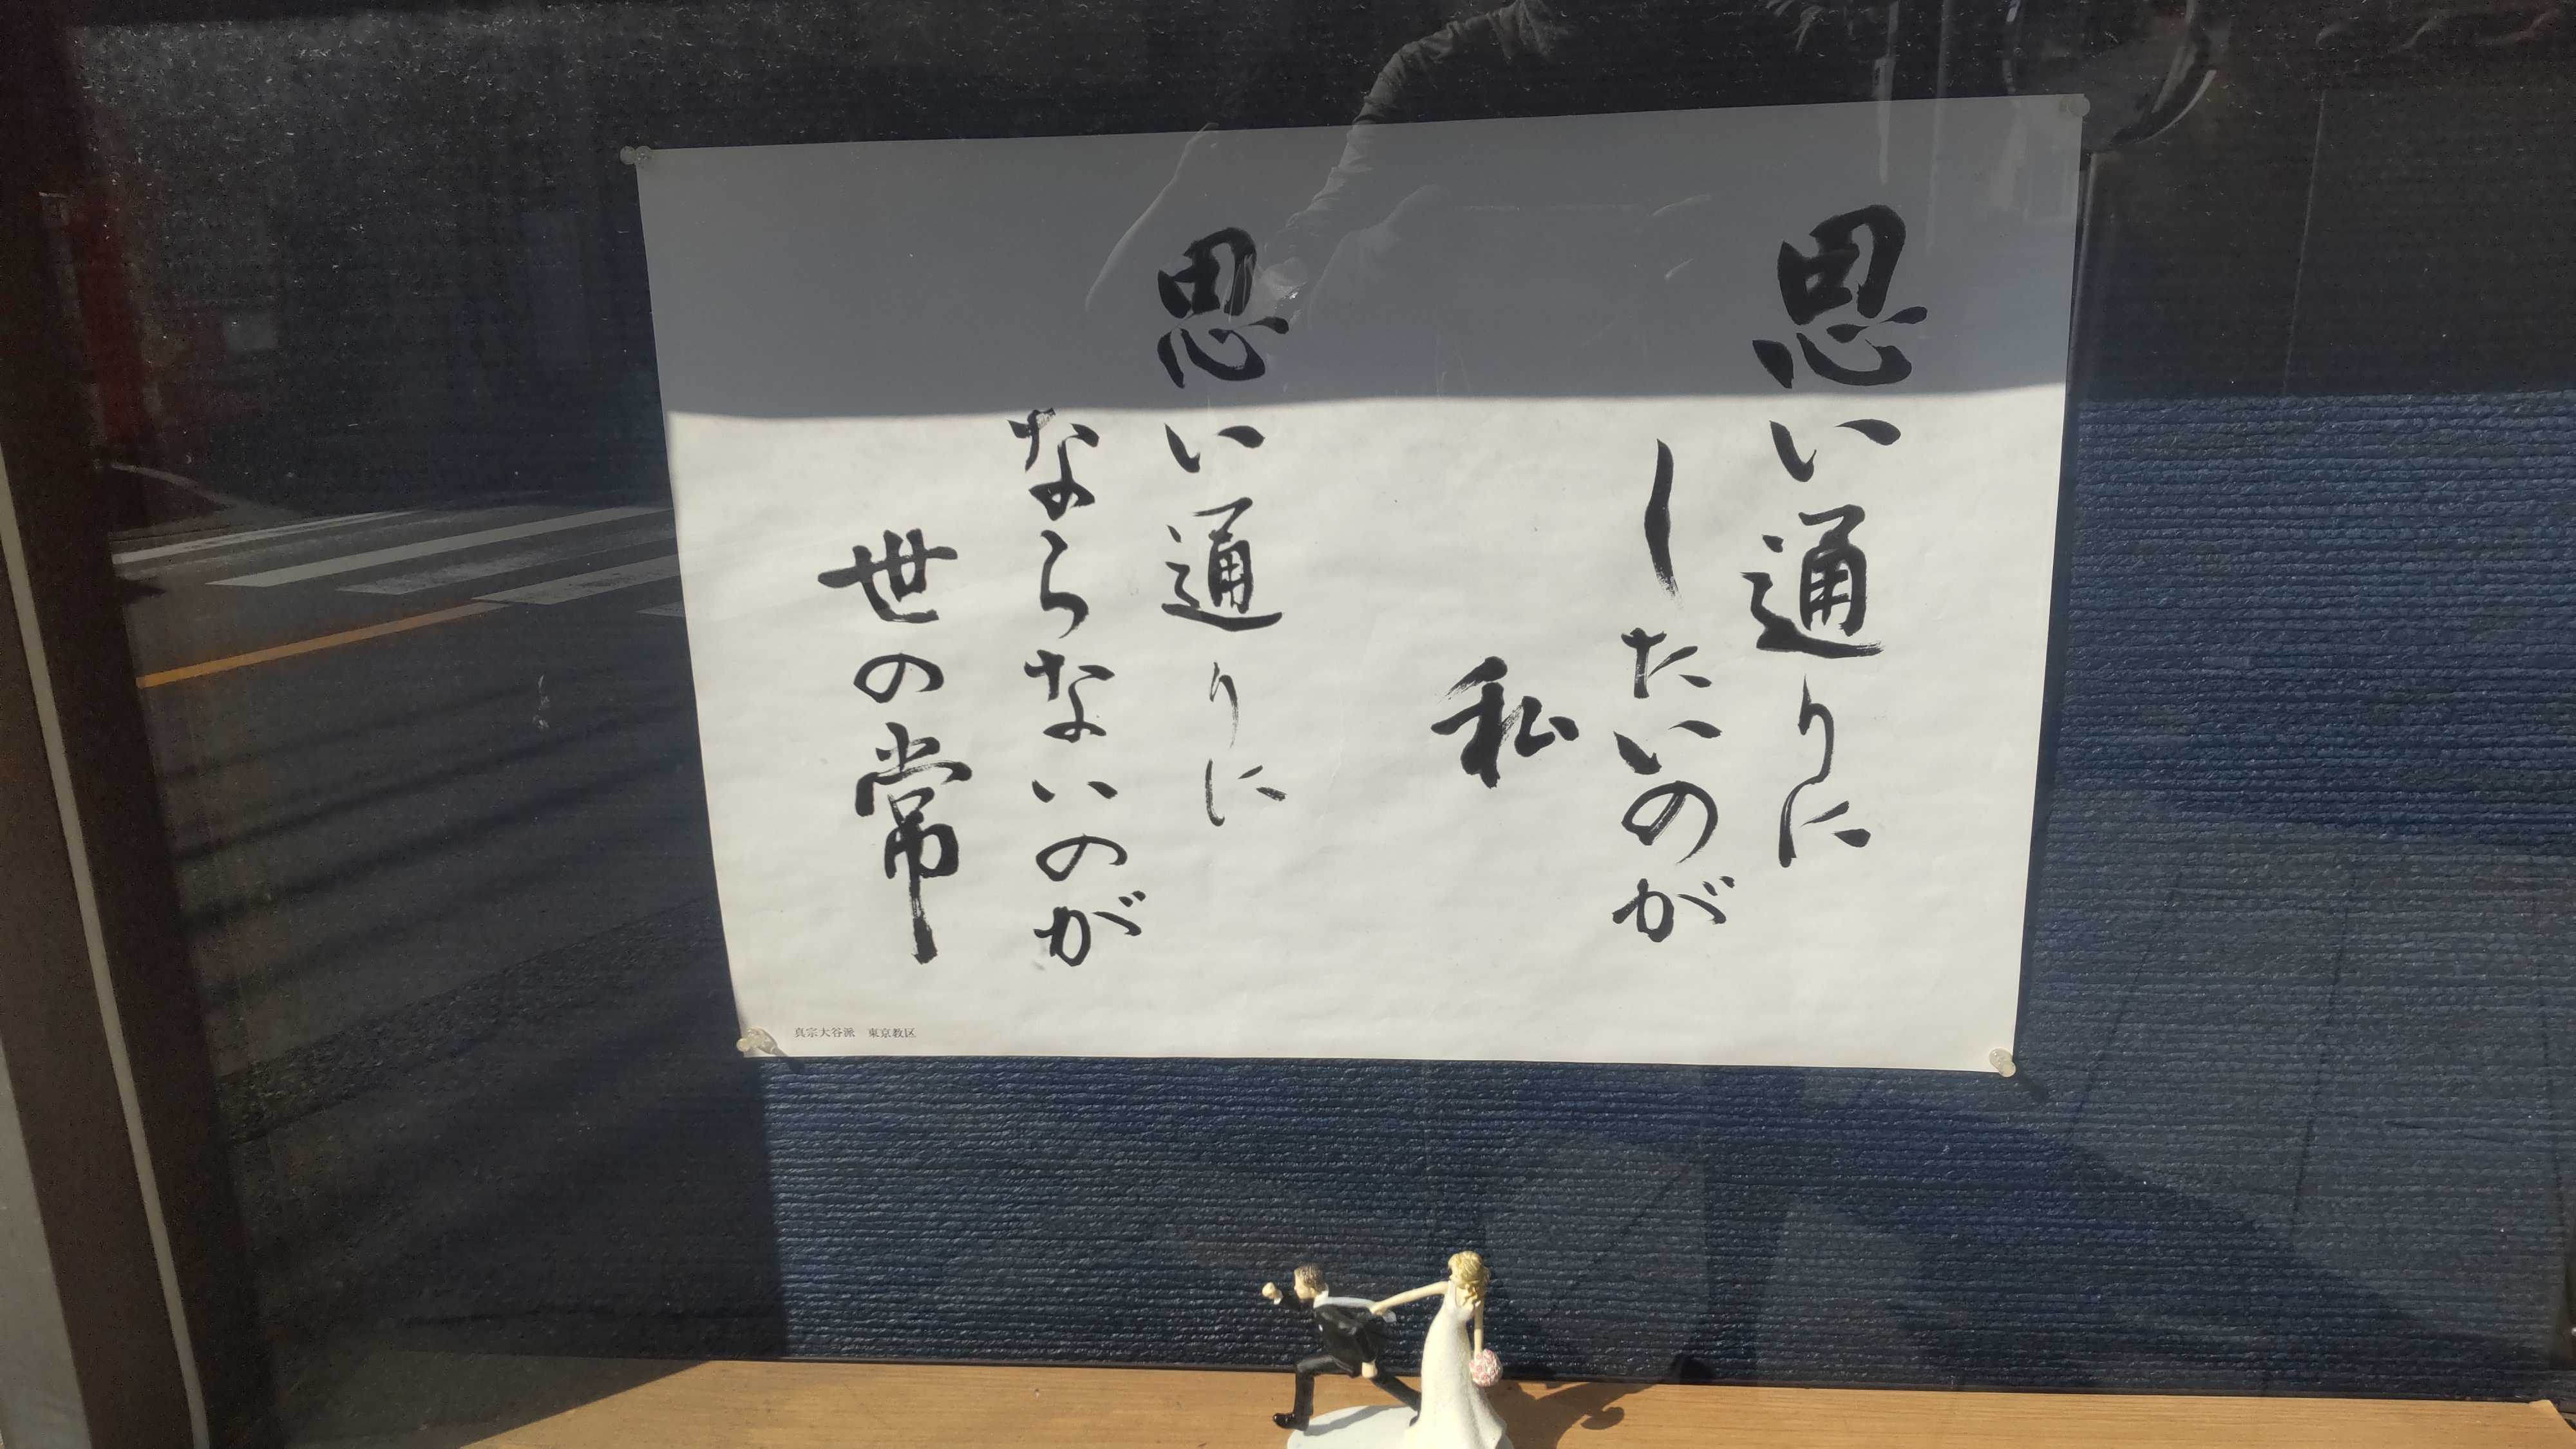 思い通りに
したいのが
私
思い通りに
ならないのが
世の常
真宗大谷派 東京教区